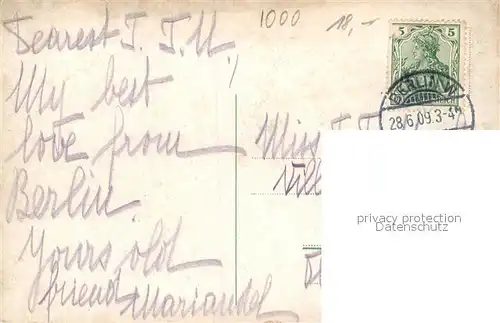 Dearest T. T. M!
My best
love from
Berlin.
Yours old
friend Mariandel
1000
18,-
5 5
BERLIN.W.
28/6.09.3-4
Miss T. T.
privacy protection
Datenschutz